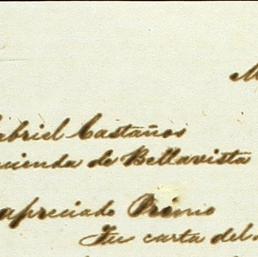 M
abriel Castaños
cienda de Bellavista
apreciado Primo
Tu carta del